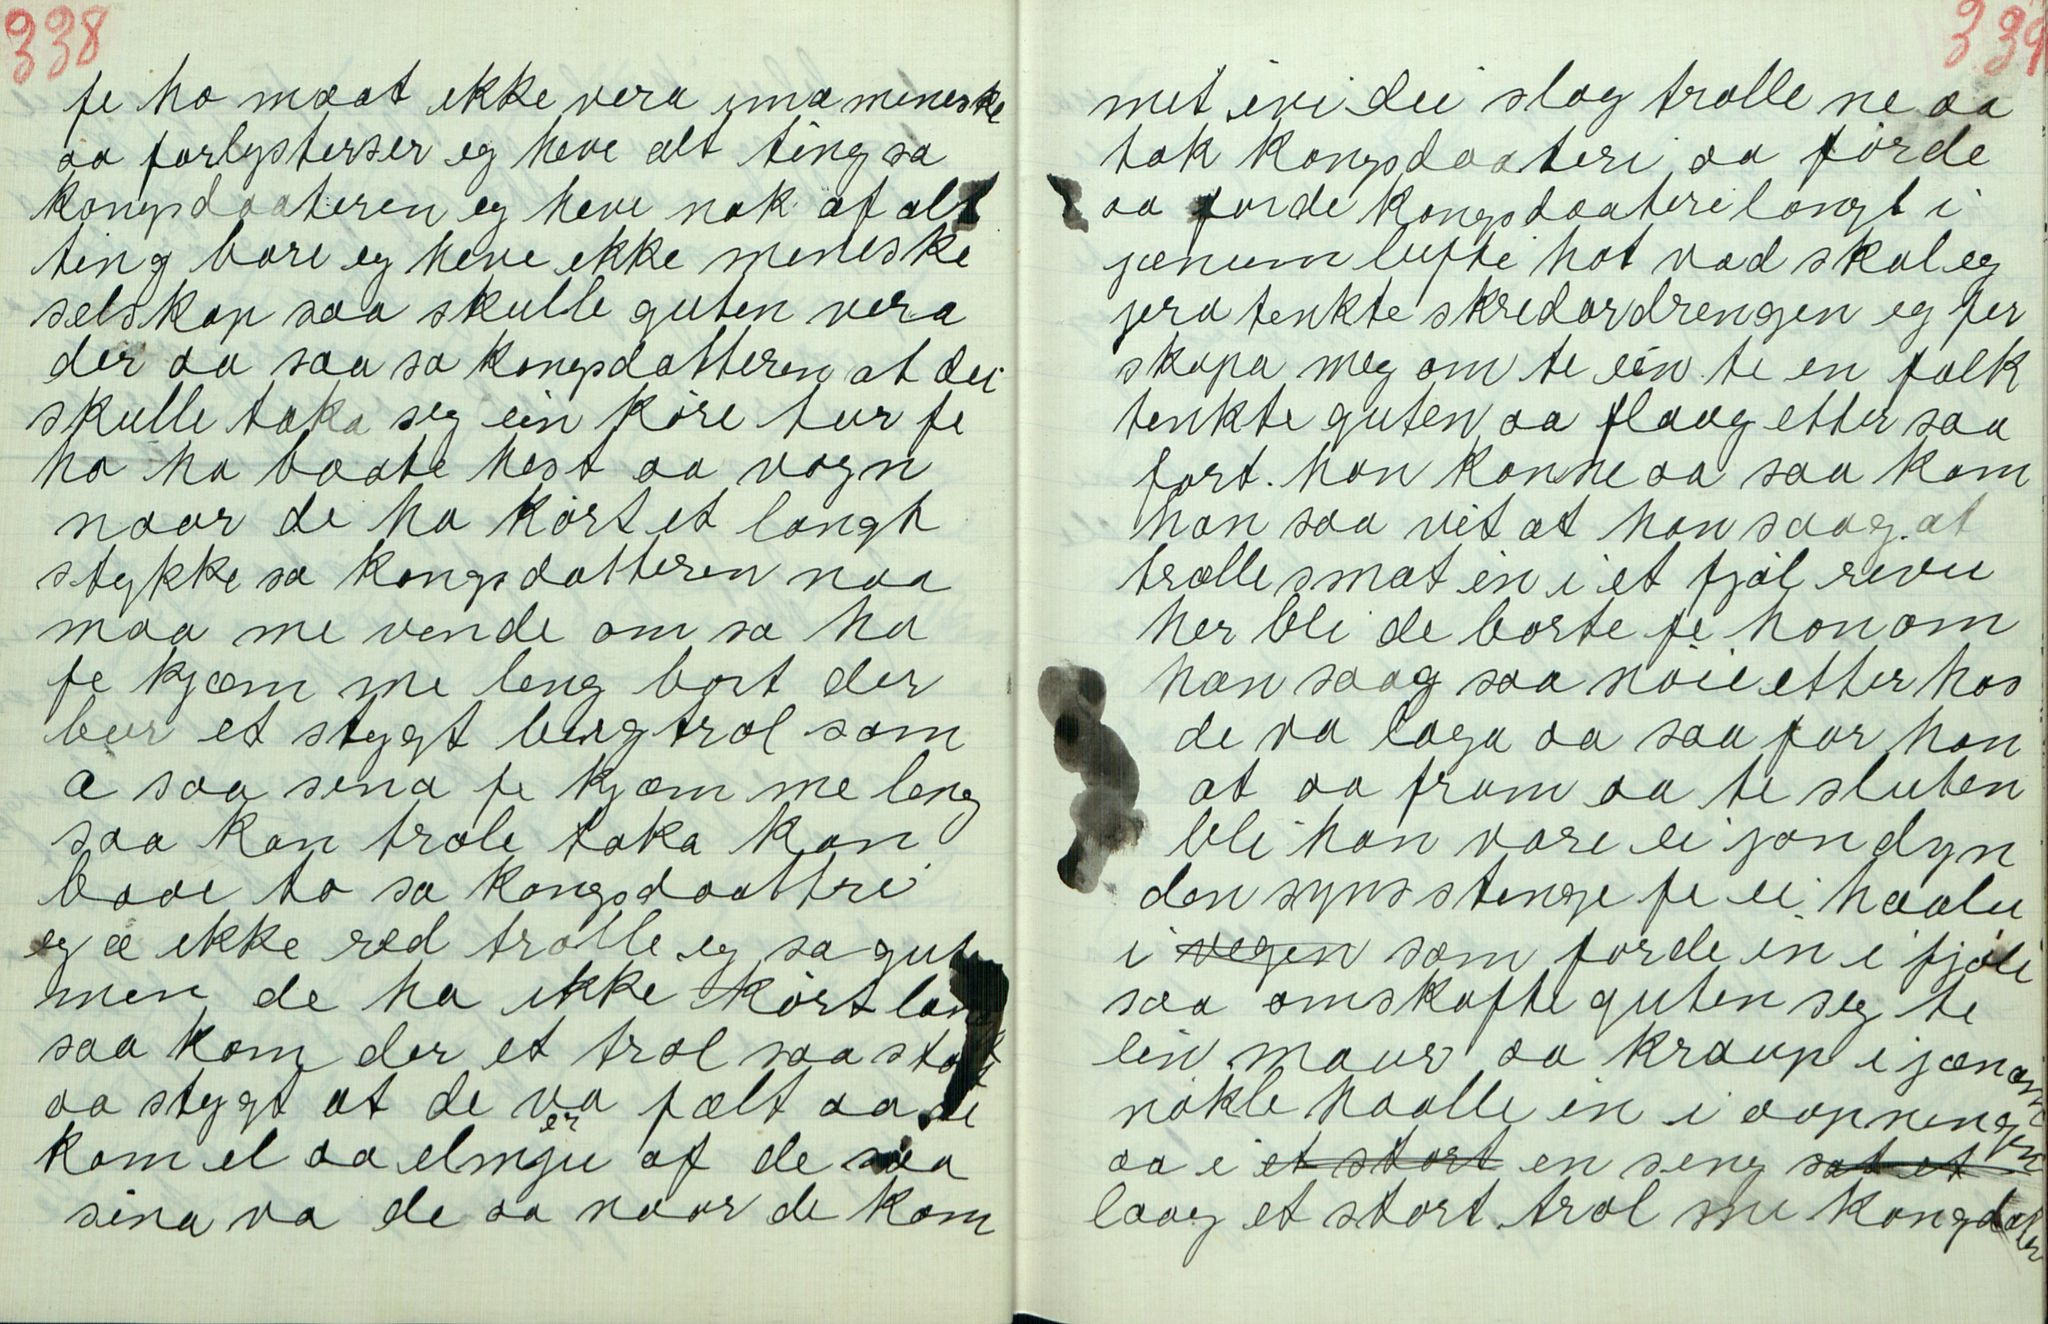 338
fe ho maat ikke vera una meneske
aa forlysterser eg heve alt ting sa
kongsdaateren eg heve nok af alt
ting bare eg heve ikke meneske
selskap saa skulle guten vera
der aa saa sa kongsdatteren at dei
skulle taka seg ein köre tur fe
ho ha baate hest aa vogn
naar de ha kört et langh
stykke sa kongsdatteren naa
maa me vende om sa ho
fe kjæm me leng bort der
bur et stygt bergtrol som
æ saa sena fe kjæm me leng
saa kan trole taka kan
baae to sa kongsdaattri
eg æ ikke ræd trolle eg sa guten
men de ha ikke kört lan
saa kom der et trol saa stort
aa stygt at de va fælt aa de
kom el aa elmyrje af de saa
sina va de aa naar de kom
339
met ivi dei slog trolle ne aa
tok kongsdaateri aa förde
aa förde kongsdaateri langt i
jænum lufti hot vad skal eg
jera tenkte skredardrengen eg fer
skapa meg om te ein te en falk
tenkte guten aa flaag etter saa
fort. han konne aa saa kom
han saa vit at han saag. at
trælle smat in i et fjöl revu
her bli de borte fe honom
han saag saa nöie etter hos
de va laga aa saa for han
at aa fram aa te sluten
bli han vare ei jondyn
den syns stenge fe ei haalu
i vegen som förde in i fjöli
saa omskafte guten seg te
ein maur aa kraup i jænom
nökle haalle in i aapningen
aa i et stort en seng sat et
laag et stort trol me kongdater